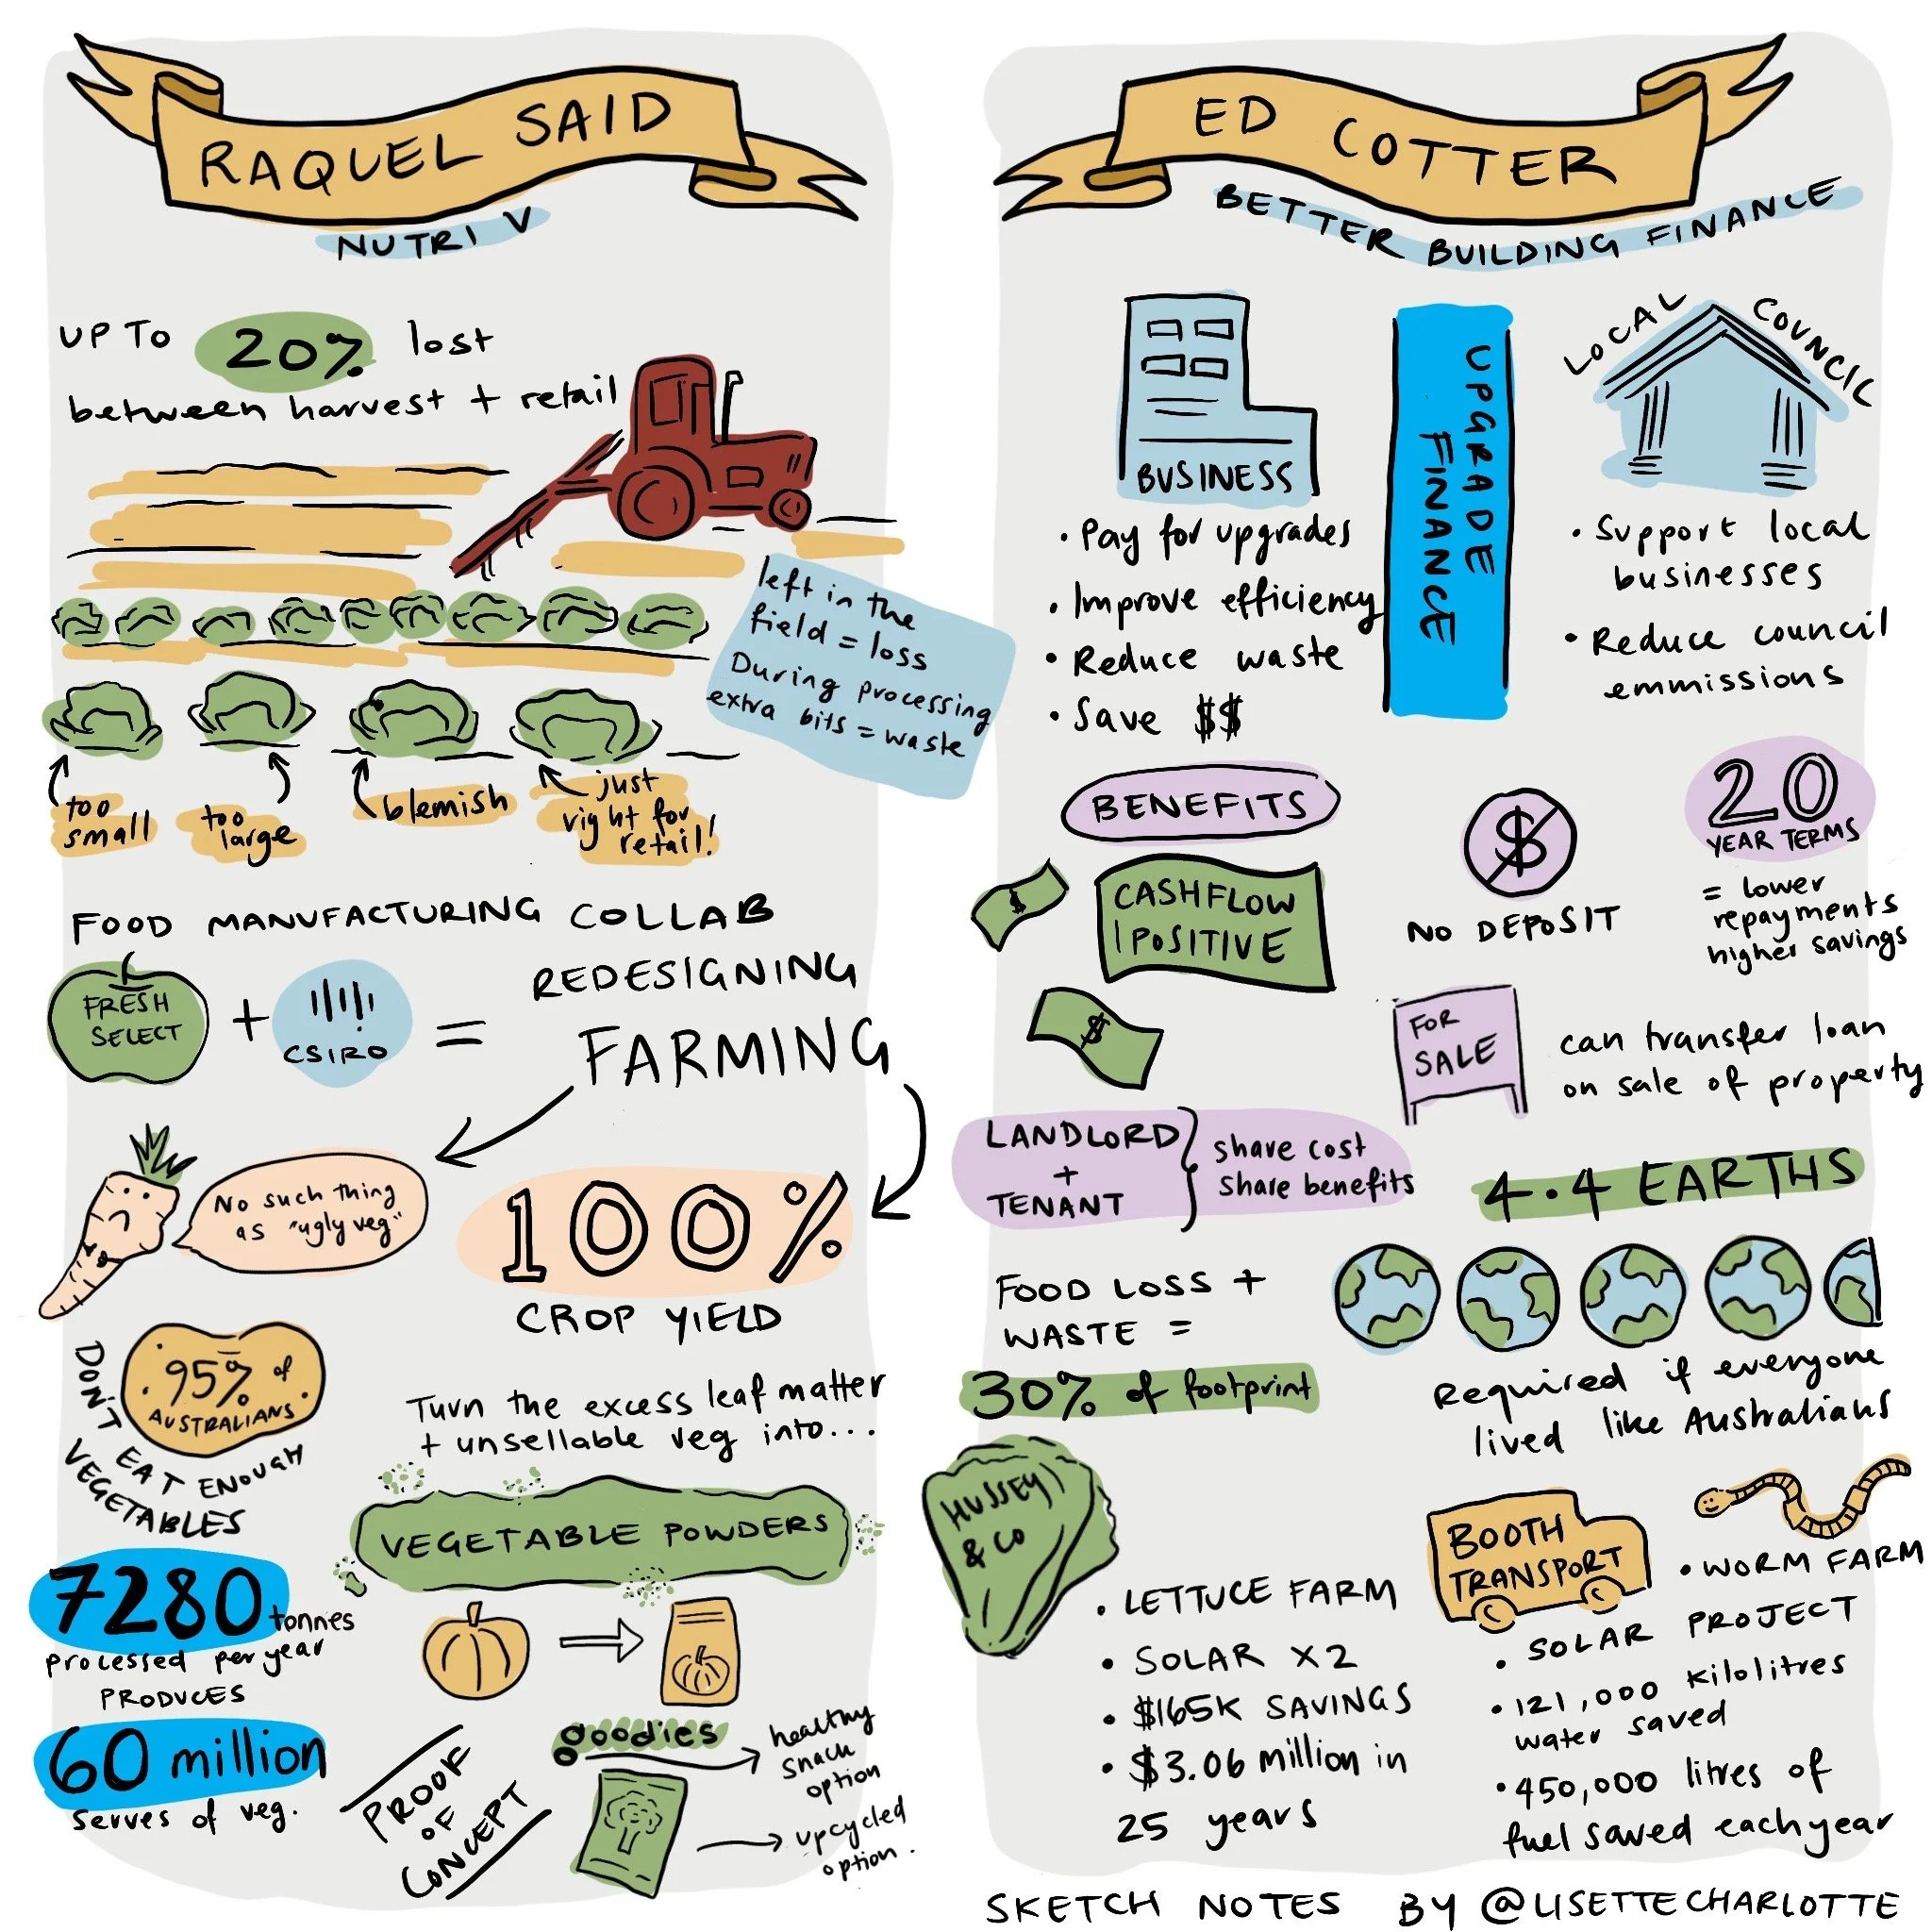 RAQUEL SAID
NUTRI V
UP TO 20% lost
between harvest + retail
left in the
field = loss
During processing
extra bits = waste
too
small
too
large
blemish
just
right for
retail!
FOOD MANUFACTURING COLLAB
FRESH
SELECT
+
CSIRO
=
REDESIGNING
FARMING
No such thing
as "ugly veg"
100%
CROP YIELD
95% of
AUSTRALIANS
DON'T EAT ENOUGH
VEGETABLES
Turn the excess leaf matter
+ unsellable veg into...
VEGETABLE POWDERS
7280 tonnes
processed per year
PRODUCES
60 million
serves of veg.
PROOF
OF
CONCEPT
goodies
healthy
snack
option
upcycled
option.
ED COTTER
BETTER BUILDING FINANCE
BUSINESS
• Pay for upgrades
• Improve efficiency
• Reduce waste
• Save $$
UPGRADE
FINANCE
LOCAL COUNCIL
• Support local
businesses
• Reduce council
emmissions
BENEFITS
$
CASHFLOW
POSITIVE
$
$
NO DEPOSIT
20
YEAR TERMS
= lower
repayments
higher savings
FOR
SALE
can transfer loan
on sale of property
LANDLORD
+
TENANT
share cost
share benefits
4.4 EARTHS
Required if everyone
lived like Australians
FOOD LOSS +
WASTE =
30% of footprint
HUSSEY
& CO
• LETTUCE FARM
• SOLAR X2
• $165K SAVINGS
• $3.06 million in
25 years
BOOTH
TRANSPORT
• WORM FARM
PROJECT
• SOLAR
• 121,000 kilolitres
water saved
• 450,000 litres of
fuel saved each year
SKETCH NOTES BY @LISETTECHARLOTTE